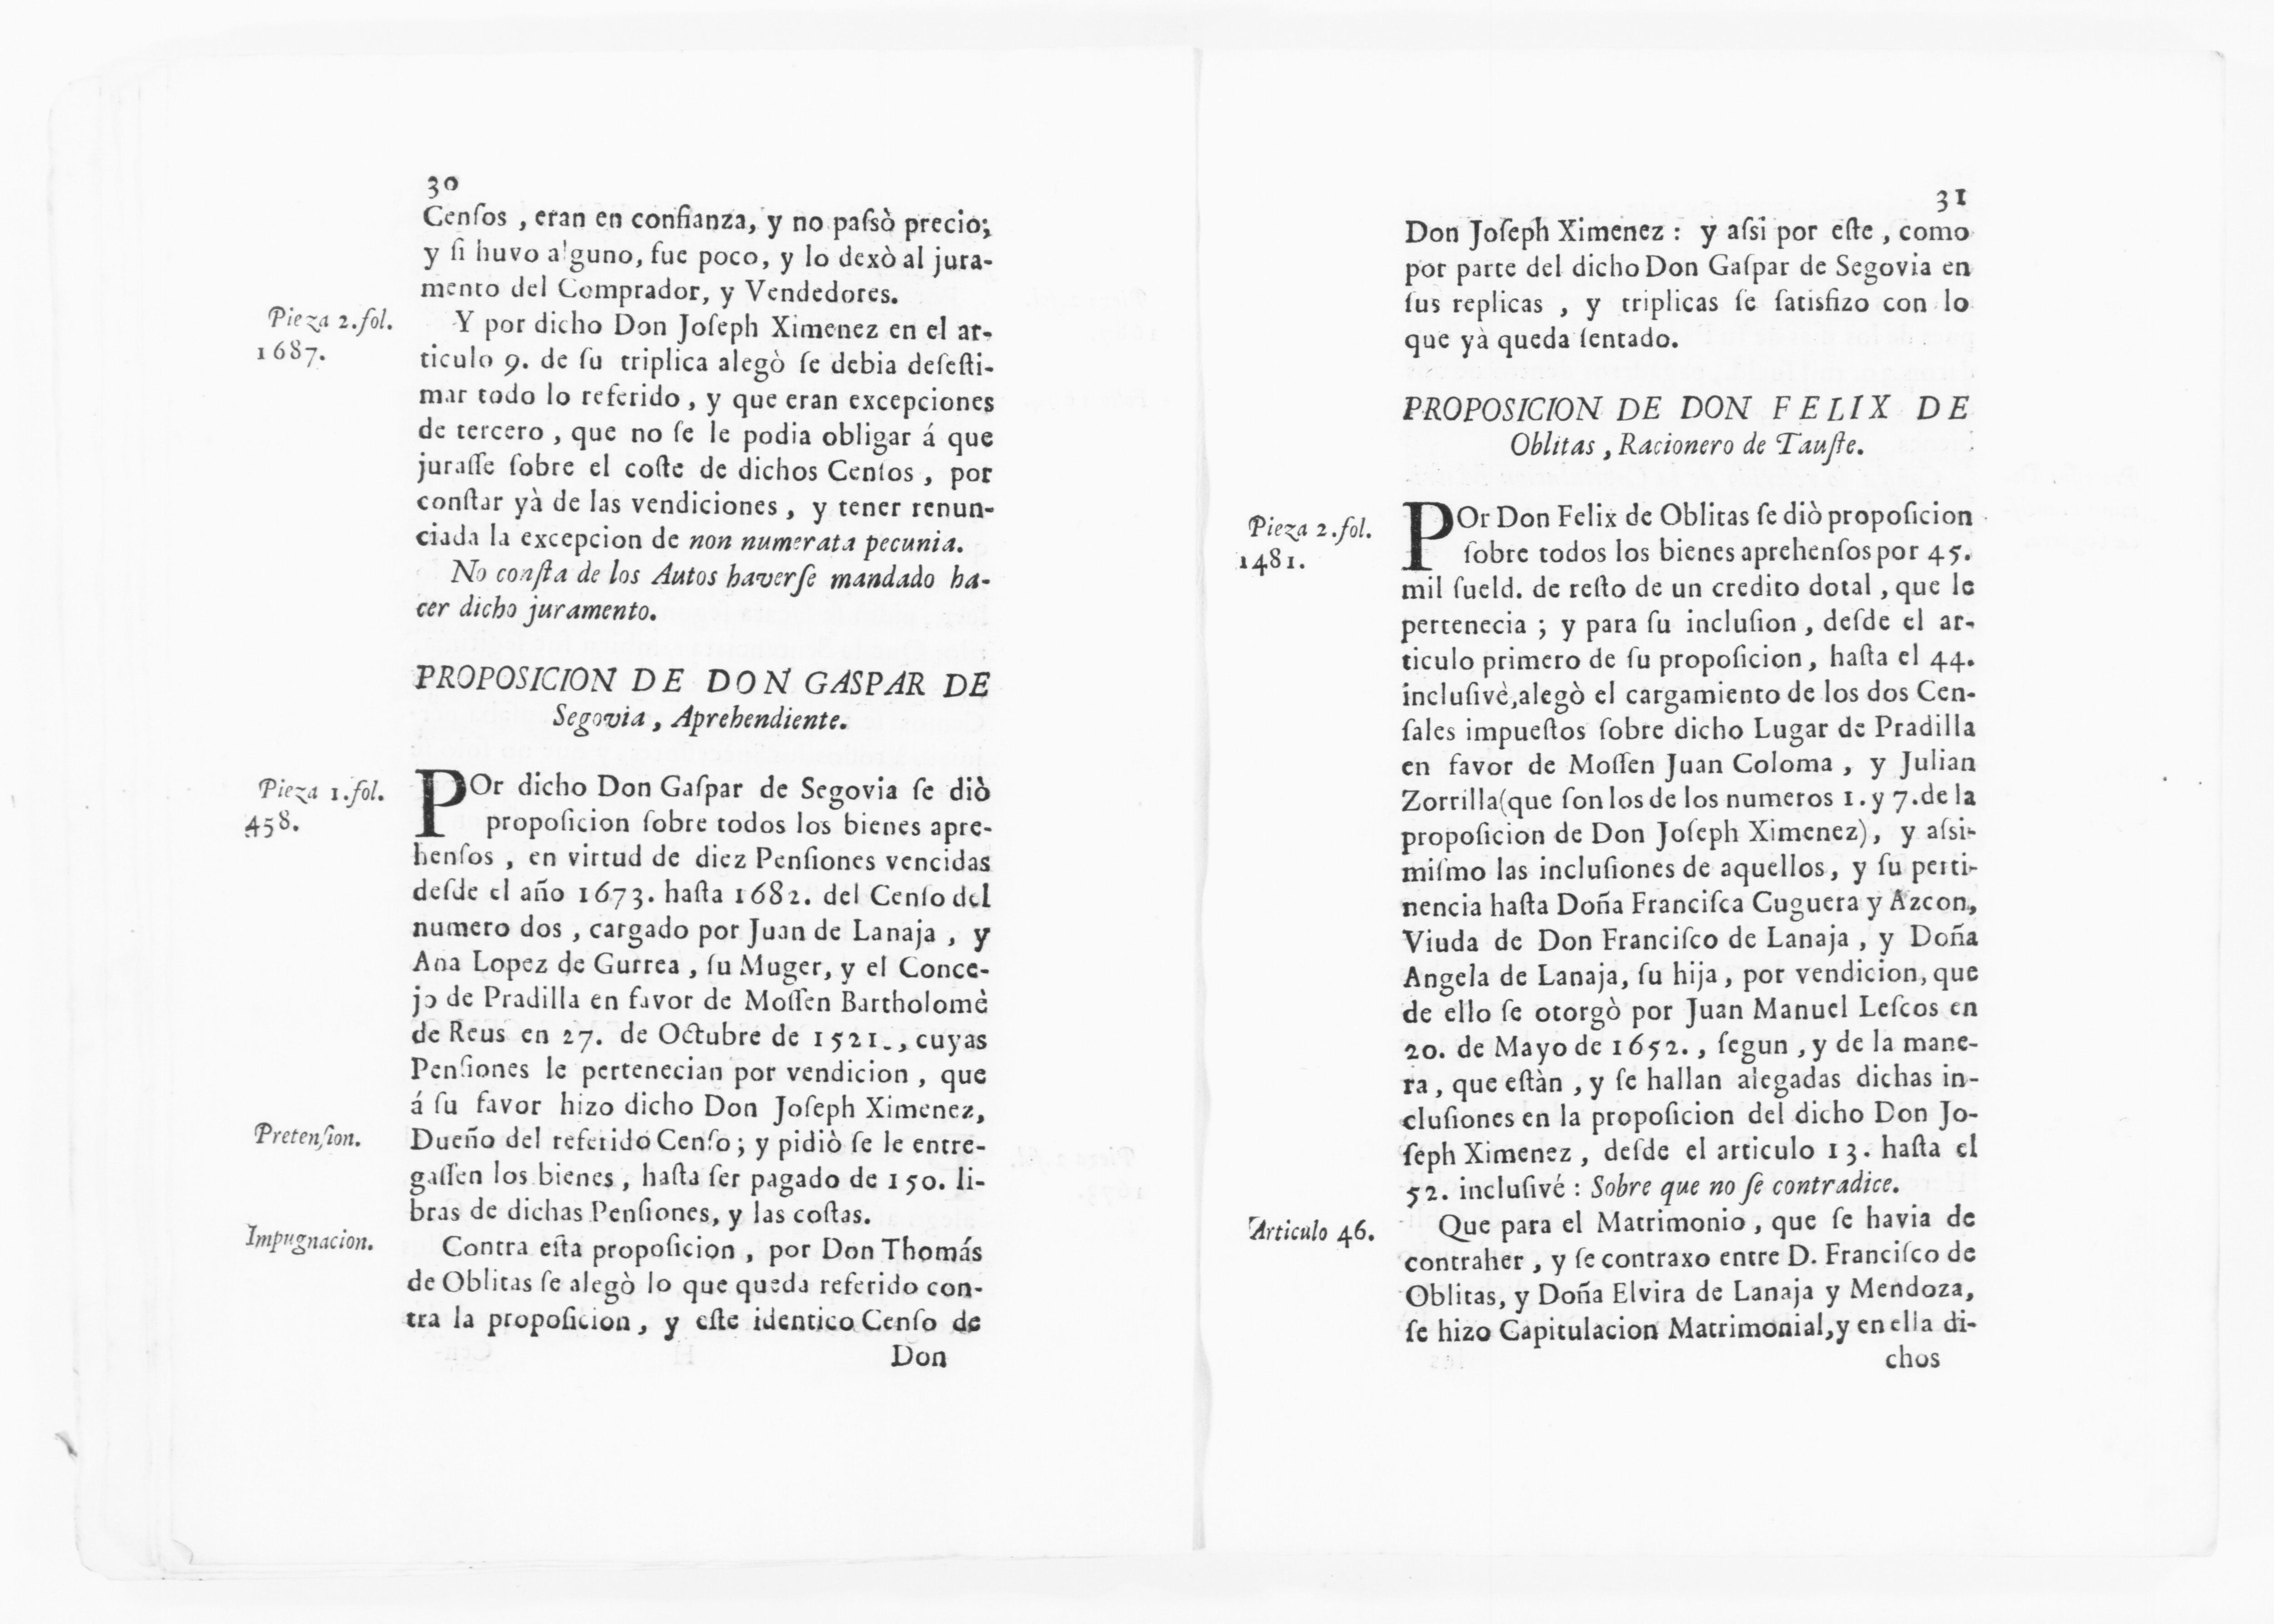 30
Cenſos , eran en confianza, y no paſsò precio;
y ſi huvo alguno, fue poco, y lo dexò al jura-
mento del Comprador, y Vendedores.
Pieza 2. fol.
1687.
Y por dicho Don Joſeph Ximenez en el ar-
ticulo 9. de ſu triplica alegò ſe debia deſeſti-
mar todo lo referido , y que eran excepciones
de tercero , que no ſe le podia obligar á que
juraſſe ſobre el coſte de dichos Cenſos , por
conſtar yà de las vendiciones , y tener renun-
ciada la excepcion de non numerata pecunia.
No conſta de los Autos haverſe mandado ha-
cer dicho juramento.
PROPOSICION DE DON GASPAR DE
Segovia , Aprehendiente.
Pieza 1. fol.
458.
POr dicho Don Gaſpar de Segovia ſe diò
propoſicion ſobre todos los bienes apre-
henſos , en virtud de diez Penſiones vencidas
deſde el año 1673. haſta 1682. del Cenſo del
numero dos , cargado por Juan de Lanaja , y
Ana Lopez de Gurrea , ſu Muger, y el Conce-
jo de Pradilla en favor de Moſſen Bartholomè
de Reus en 27. de Octubre de 1521. , cuyas
Penſiones le pertenecian por vendicion , que
á ſu favor hizo dicho Don Joſeph Ximenez,
Pretenſion.
Dueño del referido Cenſo ; y pidiò ſe le entre-
gaſſen los bienes , haſta ſer pagado de 150. li-
bras de dichas Penſiones, y las coſtas.
Impugnacion.
Contra eſta propoſicion , por Don Thomás
de Oblitas ſe alegò lo que queda referido con-
tra la propoſicion , y eſte identico Cenſo de
Don
31
Don Joſeph Ximenez : y aſsi por eſte , como
por parte del dicho Don Gaſpar de Segovia en
ſus replicas , y triplicas ſe ſatisfizo con lo
que yà queda ſentado.
PROPOSICION DE DON FELIX DE
Oblitas , Racionero de Tauſte.
Pieza 2. fol.
1481.
POr Don Felix de Oblitas ſe diò propoſicion
ſobre todos los bienes aprehenſos por 45.
mil ſueld. de reſto de un credito dotal , que le
pertenecia ; y para ſu incluſion , deſde el ar-
ticulo primero de ſu propoſicion , haſta el 44.
incluſivè, alegò el cargamiento de los dos Cen-
ſales impueſtos ſobre dicho Lugar de Pradilla
en favor de Moſſen Juan Coloma , y Julian
Zorrilla (que ſon los de los numeros 1. y 7. de la
propoſicion de Don Joſeph Ximenez) , y aſsi-
miſmo las incluſiones de aquellos , y ſu perti-
nencia haſta Doña Franciſca Cuguera y Azcon,
Viuda de Don Franciſco de Lanaja , y Doña
Angela de Lanaja, ſu hija , por vendicion, que
de ello ſe otorgò por Juan Manuel Leſcos en
20. de Mayo de 1652. , ſegun , y de la mane-
ra , que eſtàn , y ſe hallan alegadas dichas in-
cluſiones en la propoſicion del dicho Don Jo-
ſeph Ximenez , deſde el articulo 13. haſta el
52. incluſivé : Sobre que no ſe contradice.
Articulo 46.
Que para el Matrimonio , que ſe havia de
contraher , y ſe contraxo entre D. Franciſco de
Oblitas, y Doña Elvira de Lanaja y Mendoza,
ſe hizo Capitulacion Matrimonial, y en ella di-
chos